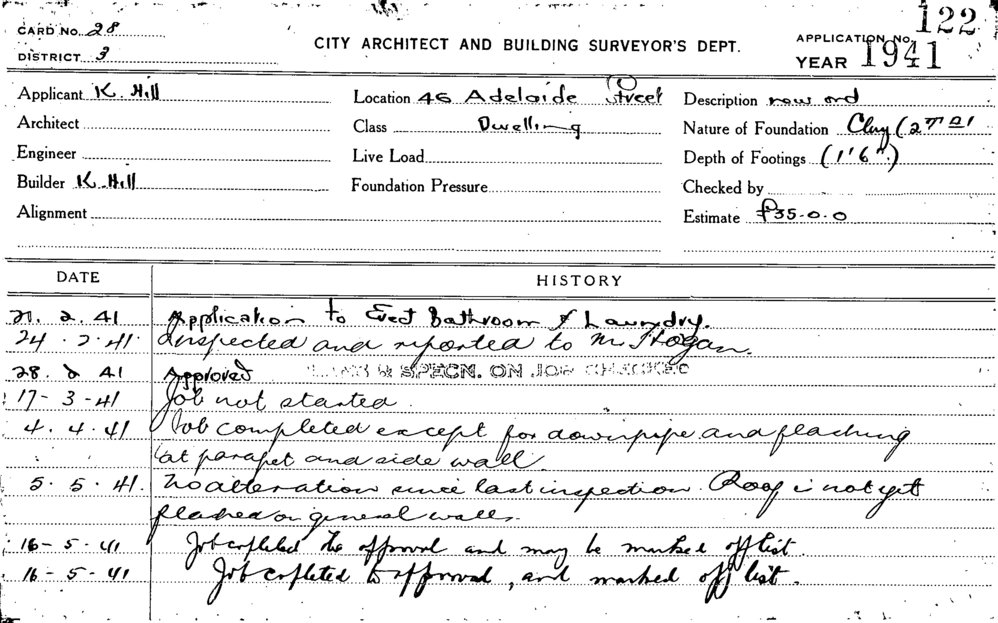 CARD NO. 28
DISTRICT 3
CITY ARCHITECT AND BUILDING SURVEYOR'S DEPT.
APPLICATION No. 122
YEAR 1941
Applicant K. Hill
Location 46 Adelaide Street
Description new ord
Architect
Class Dwelling
Nature of Foundation Clay
Engineer
Live Load
Depth of Footings (1'6")
Builder K. Hill
Foundation Pressure
Checked by
Alignment
Estimate £35-0-0
DATE HISTORY
21. 2. 41 Application to Erect Bathroom & Laundry.
24. 2. 41. Inspected and reported to Mr Hogan.
28. 2 41 Approved SPECN. ON JOB CHECKED
17-3-41 Job not started.
4. 4. 41 Job completed except for downpipe and flashing
at parapet and side wall.
5. 5. 41. No alteration since last inspection. Roof is not yet
flashed on general walls.
16-5-41 Job completed to approval and may be marked off list.
16-5-41 Job completed to approval, and marked off list.